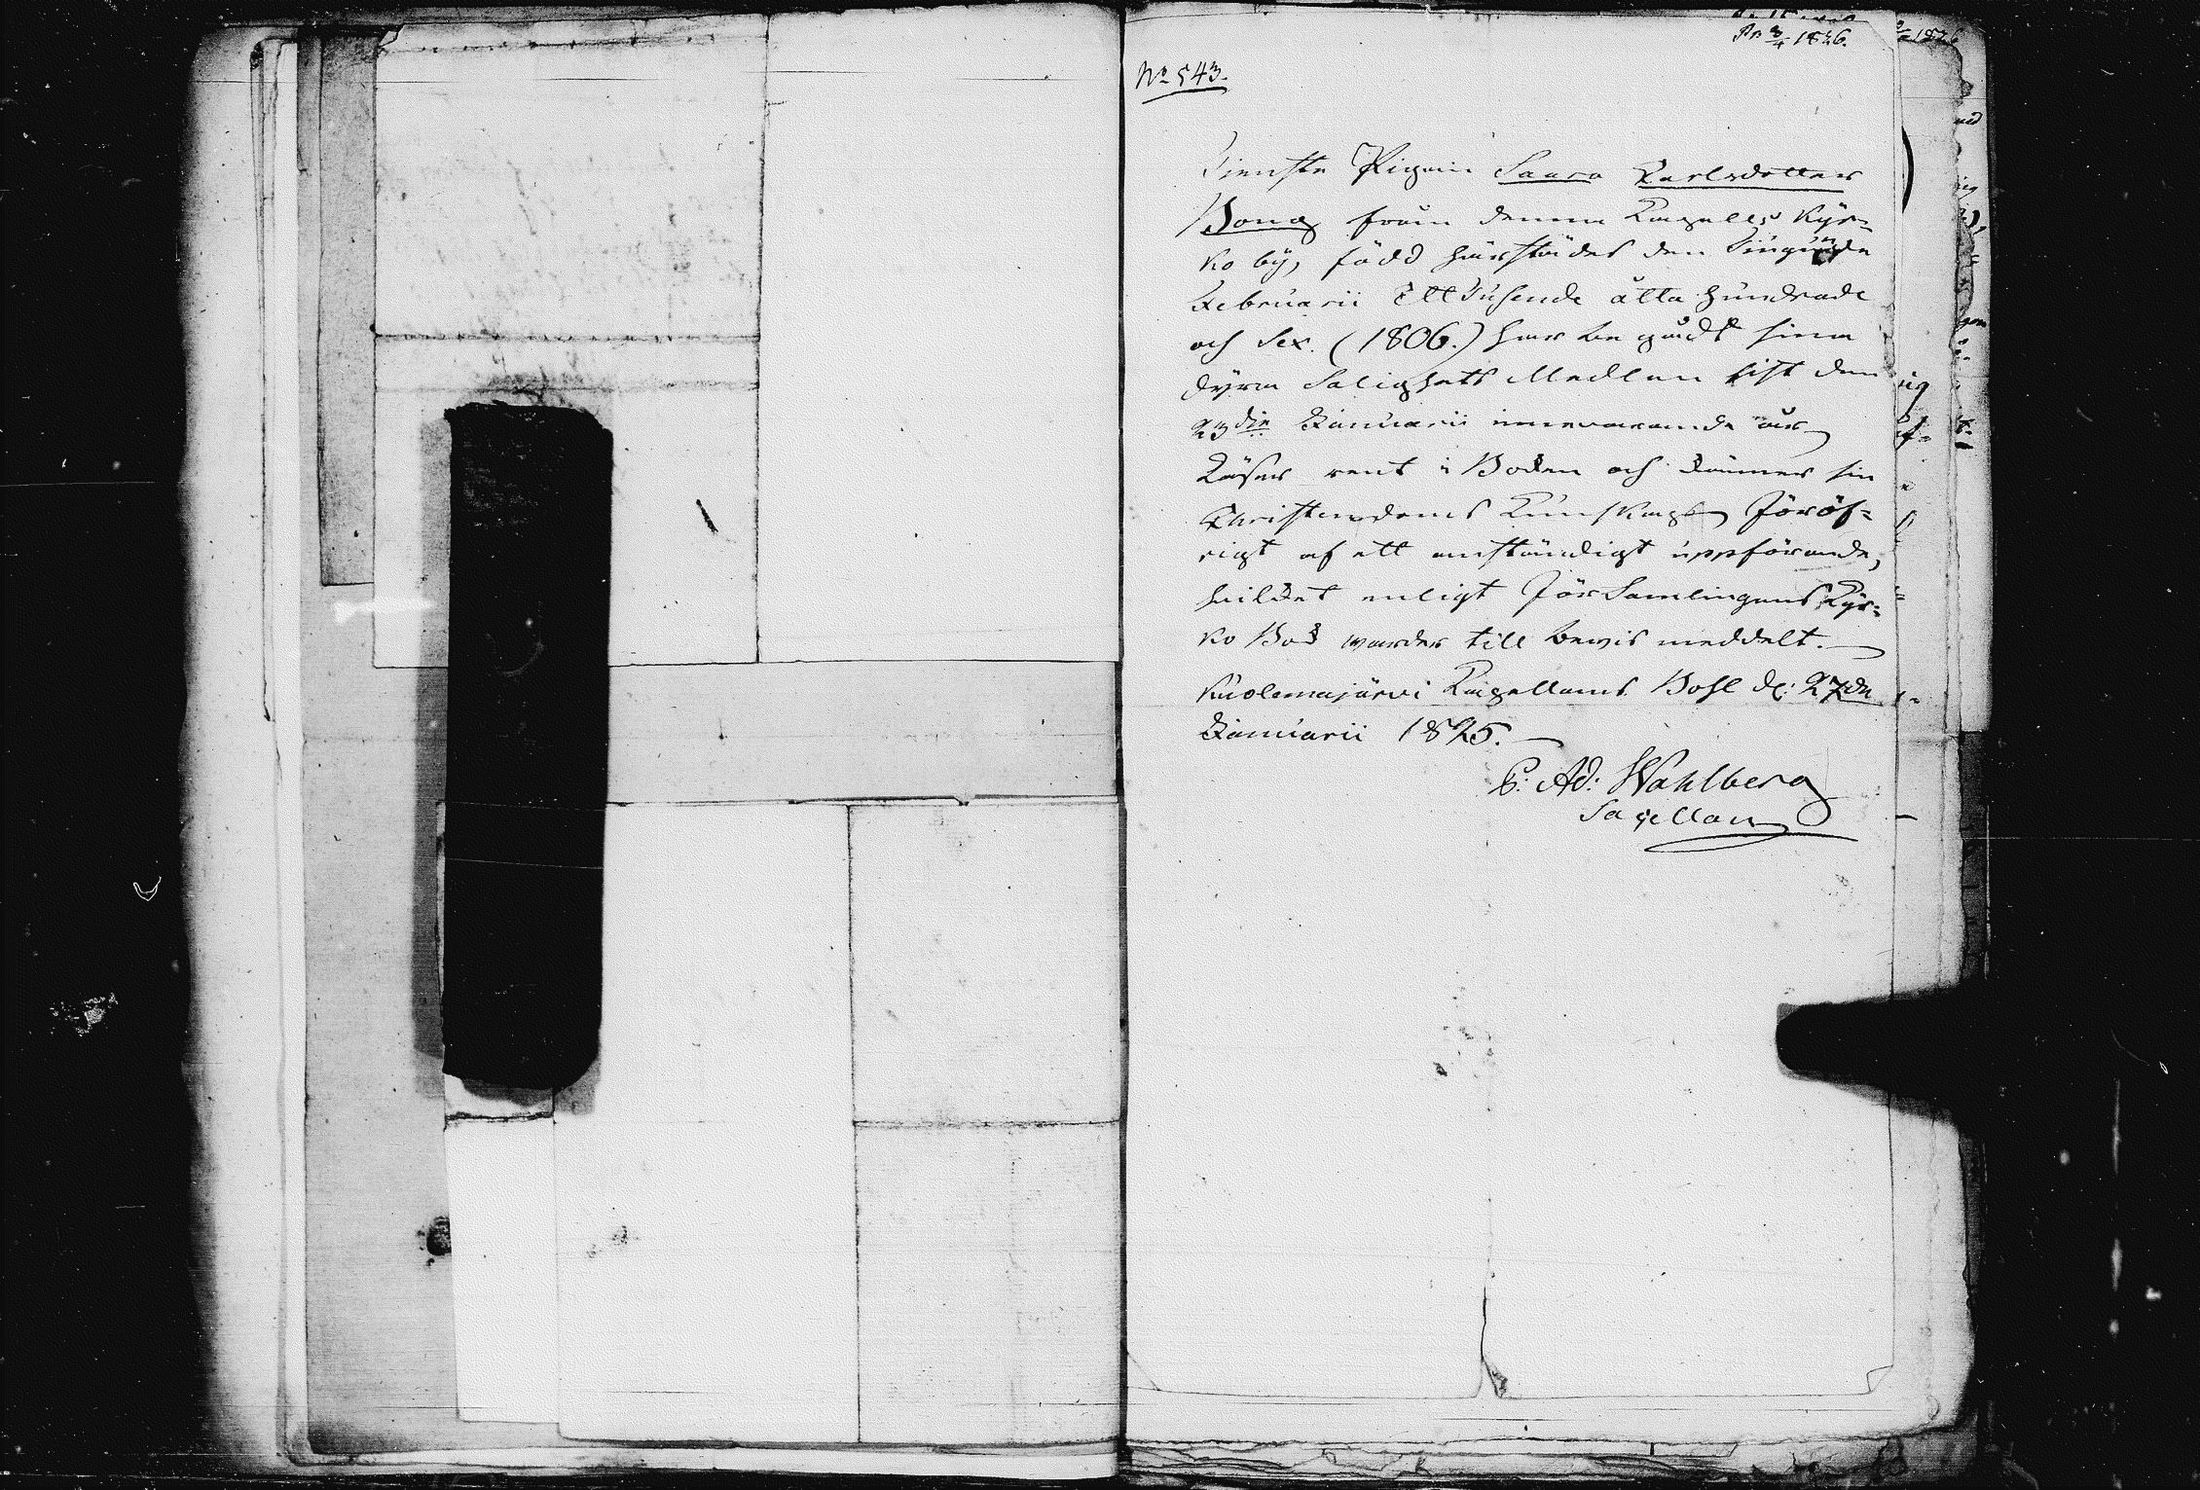 Pr 3/4 1826.
No 543.
Tienste Pigan Saara Karlsdotter
Bong från denna Capells Kyr=
ko by, född härstädes den Tiugunde
Februarii Ett Tusende åtta hundrade
och Sex. (1806.) har begådt sina
dyra Salighets Medlen sist den
23die Januarii innevarande år
Läser rent i Boken och känner sin
Christendoms Kunskap Föröf=
rigt af ett anständigt uppförande,
hvilket enligt Församlingens Kyr=
ko Bok warder till bewis meddelt.
Kuolemajärvi Capellans Bohl d: 27de
Januarii 1825.
C: Ad: Wahlberg
Sacellan